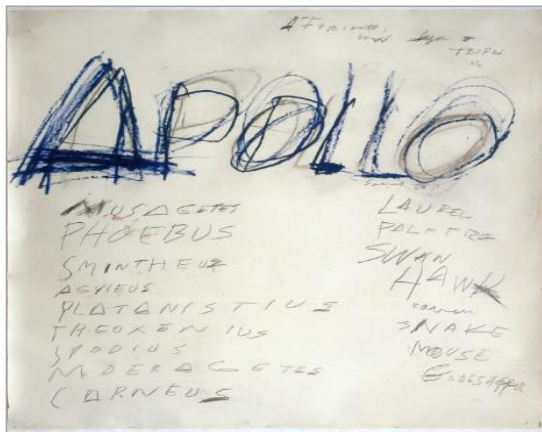 APOLLO
MUSAGETES
PHOEBUS
SMINTHEUS
AGYIEUS
PLATANISTIUS
THEOXENIUS
SPODIUS
MOERAGETES
CARNEUS
LAUREL
PALM TREE
SWAN
HAWK
RAVEN
SNAKE
MOUSE
GRASSHOPPER